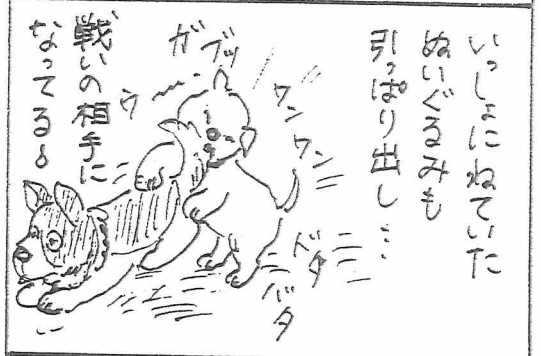 いっしょにねていた
ぬいぐるみも
引っぱり出し…
ワンワン
ガブッ
ウ〜〜
ドタ
バタ
戦いの相手に
なってる。